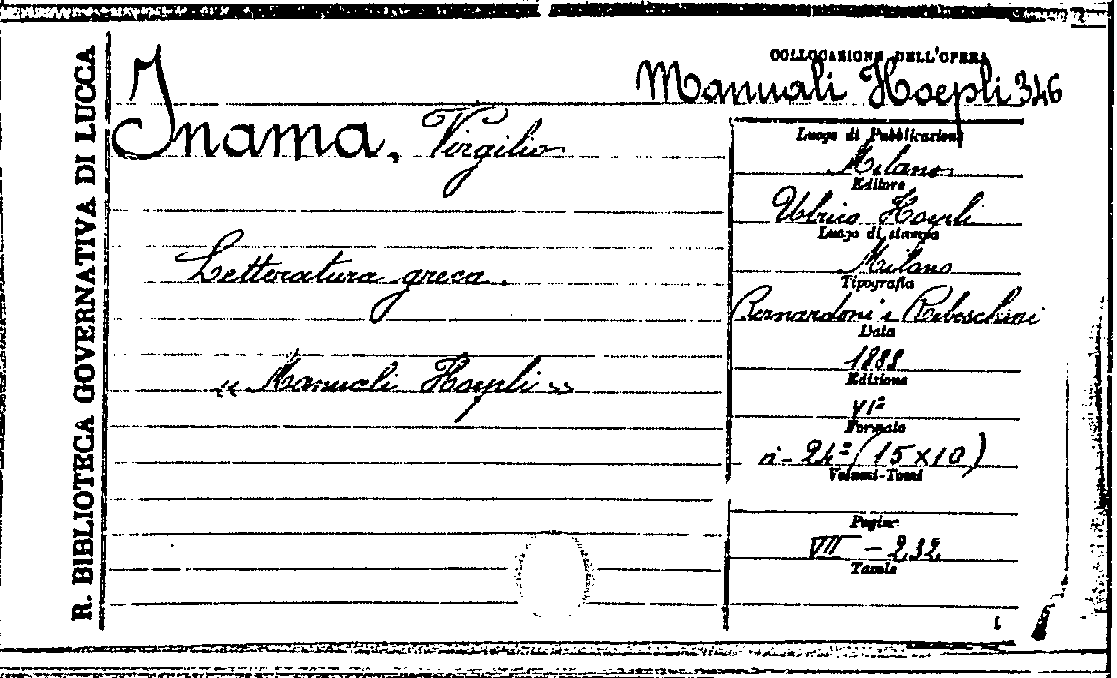 R. BIBLIOTECA GOVERNATIVA DI LUCCA
COLLOCAZIONE DELL'OPERA
Manuali Hoepli 346
Inama, Virgilio
Letteratura greca.
« Manuali Hoepli »
Luogo di Pubblicazione
Milano
Editore
Ulrico Hoepli
Luogo di stampa
Milano
Tipografia
Bernardoni e Rebeschini
Data
Edizione
VIª
Formato
in-24º (15 x 10)
Volumi-Tomi
Pagine
VII - 232
Tavole